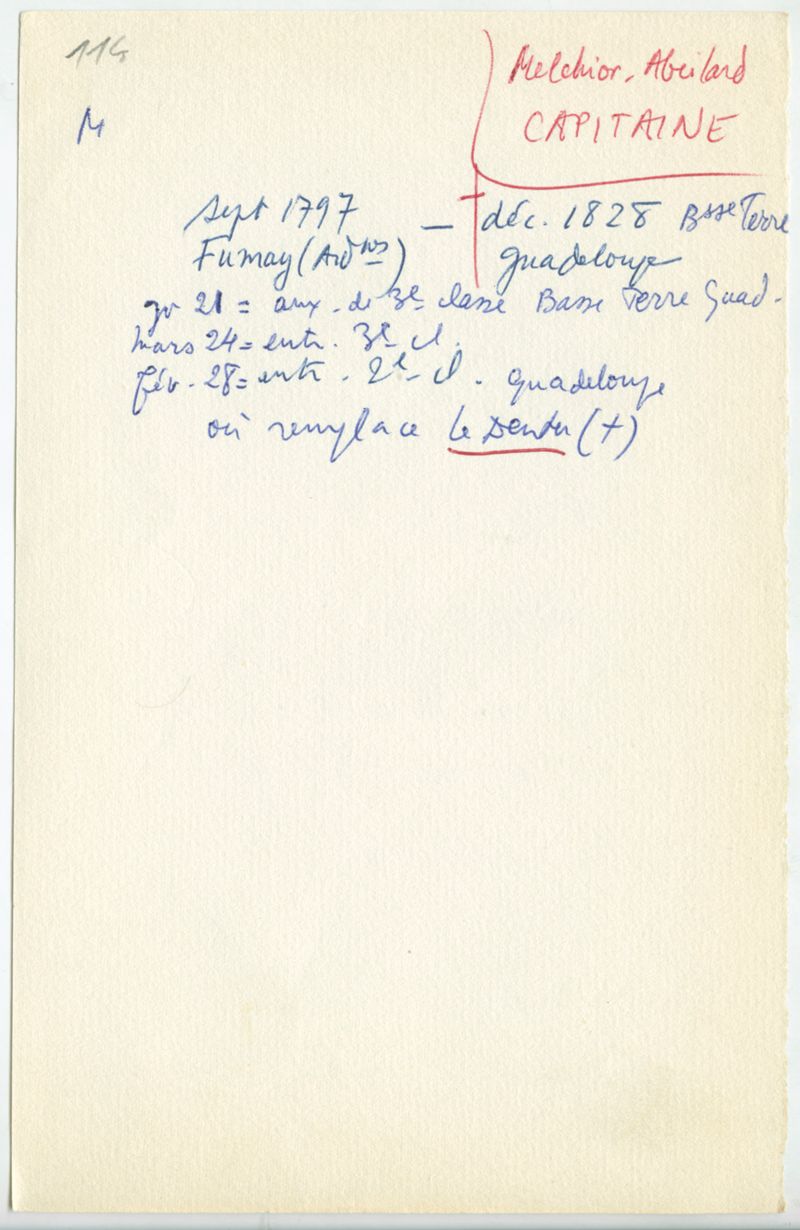 114
Melchior. Abeilard
CAPITAINE
M
Sept 1797 — † déc. 1828 Bsse Terre
Fumay (Ardnes) Guadeloupe
jv 21 = aux. de 3e classe Basse Terre Guad.
mars 24 = entr. 3e cl.
fév. 28 = entr. 2e cl. Guadeloupe
où remplace Le Dentu (+)